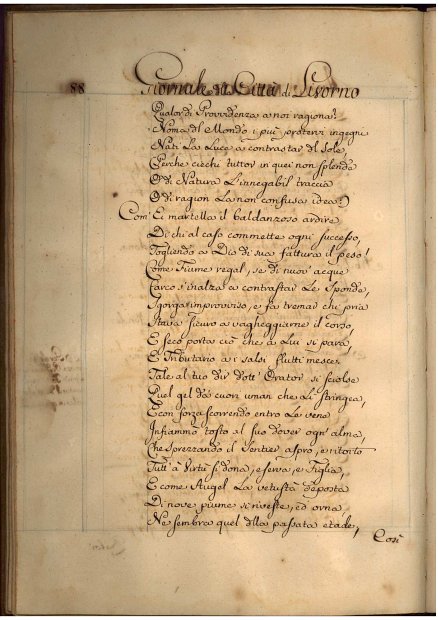 88
Giornale della Città di Livorno
Qualor di Providenza a noi ragiona?
Noma del Mondo i più protervi ingegni
Nati La Luce a contrastar del Sole,
Perche ciechi tuttor in quei non splenda
O di Natura L'innegabil traccia
O di ragion La non confusa idea?
Com' Ei martella il baldanzoso ardire
Di chi al caso commette ogni successo,
Togliendo a Dio di sua fattura il peso!
Come Fiume regal, se di nuov' acque
Carco s'inalza a contrastar Le Sponde,
Sgorga improviso, e fa tremar chi pria
Stava sicuro a vagheggiarne il corso,
E seco porta ciò che a Lui si para,
E Tributario a i salsi flutti mesce:
Tale al tuo dir dott' Orator si sciolse
Quel gel da cuori uman che Li stringea,
E con forza scorrendo entro Le vene
Infiammò tosto al suo dover ogn' alma,
Che sprezzando il Sentier aspro, e ritorto
Tutt' à Virtù si dona, e serva, e Figlia,
E come Augel La vetustà deposta
Di nove piume si riveste, ed orna,
Ne sembra quel della passata etade,
Così